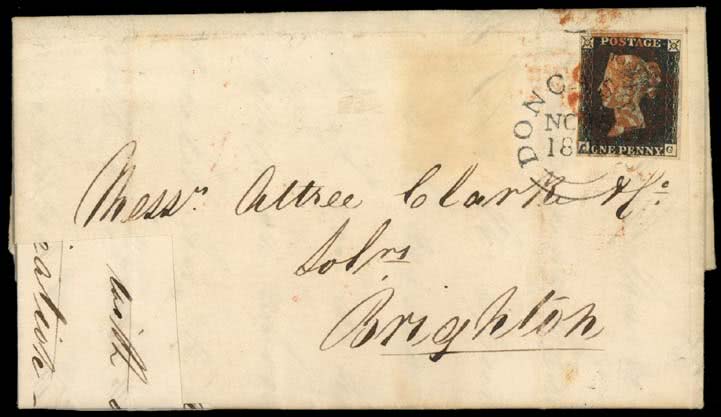 POSTAGE
ONE PENNY
DONC
NO
18
Messrs Attree Clarke & Co
Solrs
Brighton
with